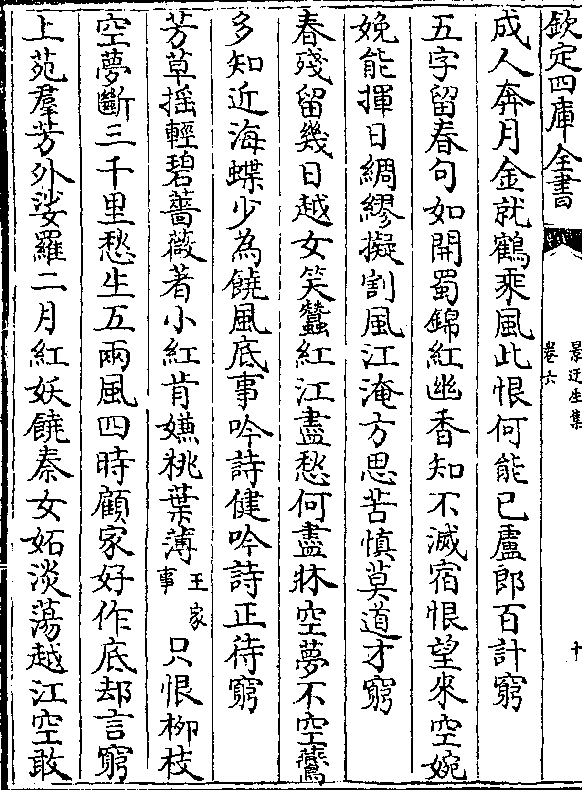 欽定四庫全書
景迂生集
卷六
十
成人奔月金就鶴乘風此恨何能已盧郎百計窮
五字留春句如開蜀錦紅幽香知不滅宿恨望來空婉
娩能揮日綢繆擬割風江淹方思苦慎莫道才窮
春殘留幾日越女笑蠶紅江盡愁何盡牀空夢不空鶯
多知近海蝶少為饒風底事吟詩健吟詩正待窮
芳草揺輕碧薔薇著小紅肯嫌桃葉薄王家事只恨柳枝
空夢斷三千里愁生五兩風四時顧家好作底却言窮
上苑羣芳外娑羅二月紅妖饒秦女妬淡蕩越江空敢